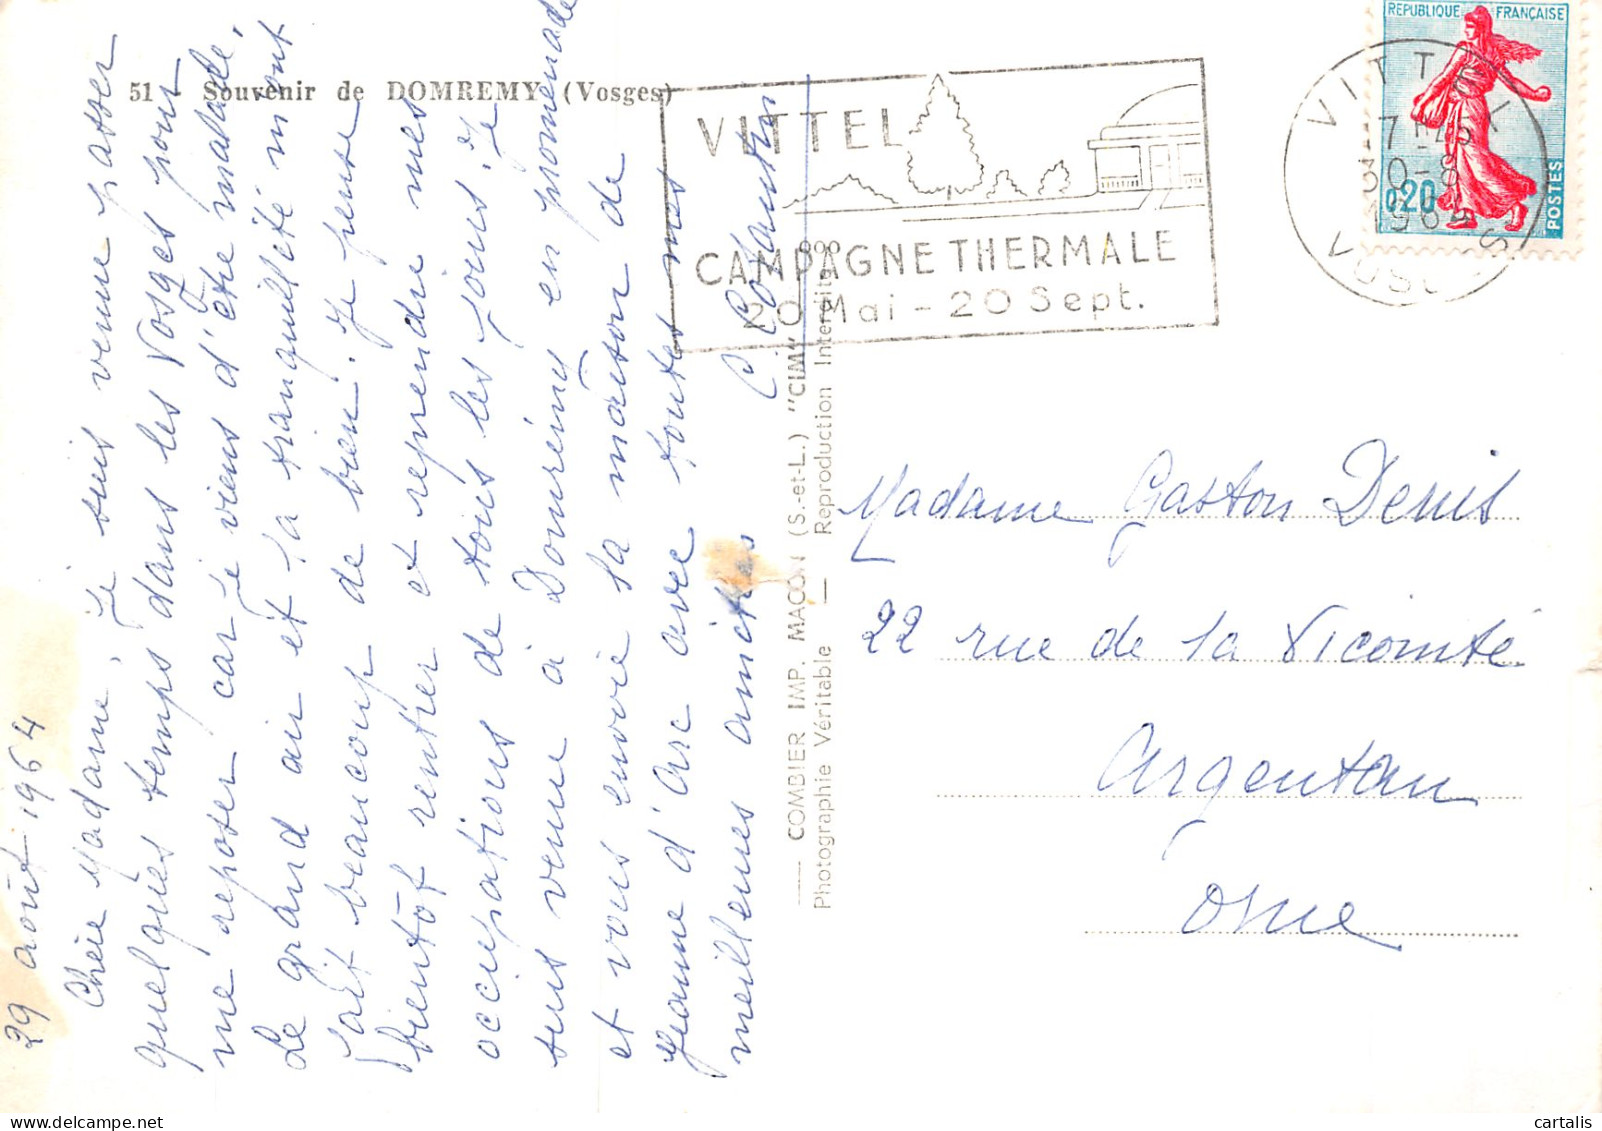 51 - Souvenir de DOMREMY (Vosges)
VITTEL
CAMPAGNE THERMALE
20 Mai - 20 Sept.
VITTEL
17 H 45
30-8
1964
VOSGES
REPUBLIQUE FRANÇAISE
0,20
POSTES
29 août 1964
Chère Madame, Je suis venue passer
quelques temps dans les Vosges pour
me reposer car je viens d'être malade,
Le grand air et la tranquillité m'ont
fait beaucoup de bien. Je pense
bientôt rentrer et reprendre mes
occupations de tous les jours. Je
suis venue à Domrémy en promenade
et vous envoie la maison de
Jeanne d'Arc avec toutes mes
meilleures amitiés
COMBIER IMP. MACON (S.-et-L.) "CIM"
Photographie Véritable — Reproduction Interdite
Madame Gaston Denis
22 rue de la Vicomté
Argentan
Orne
cartalis